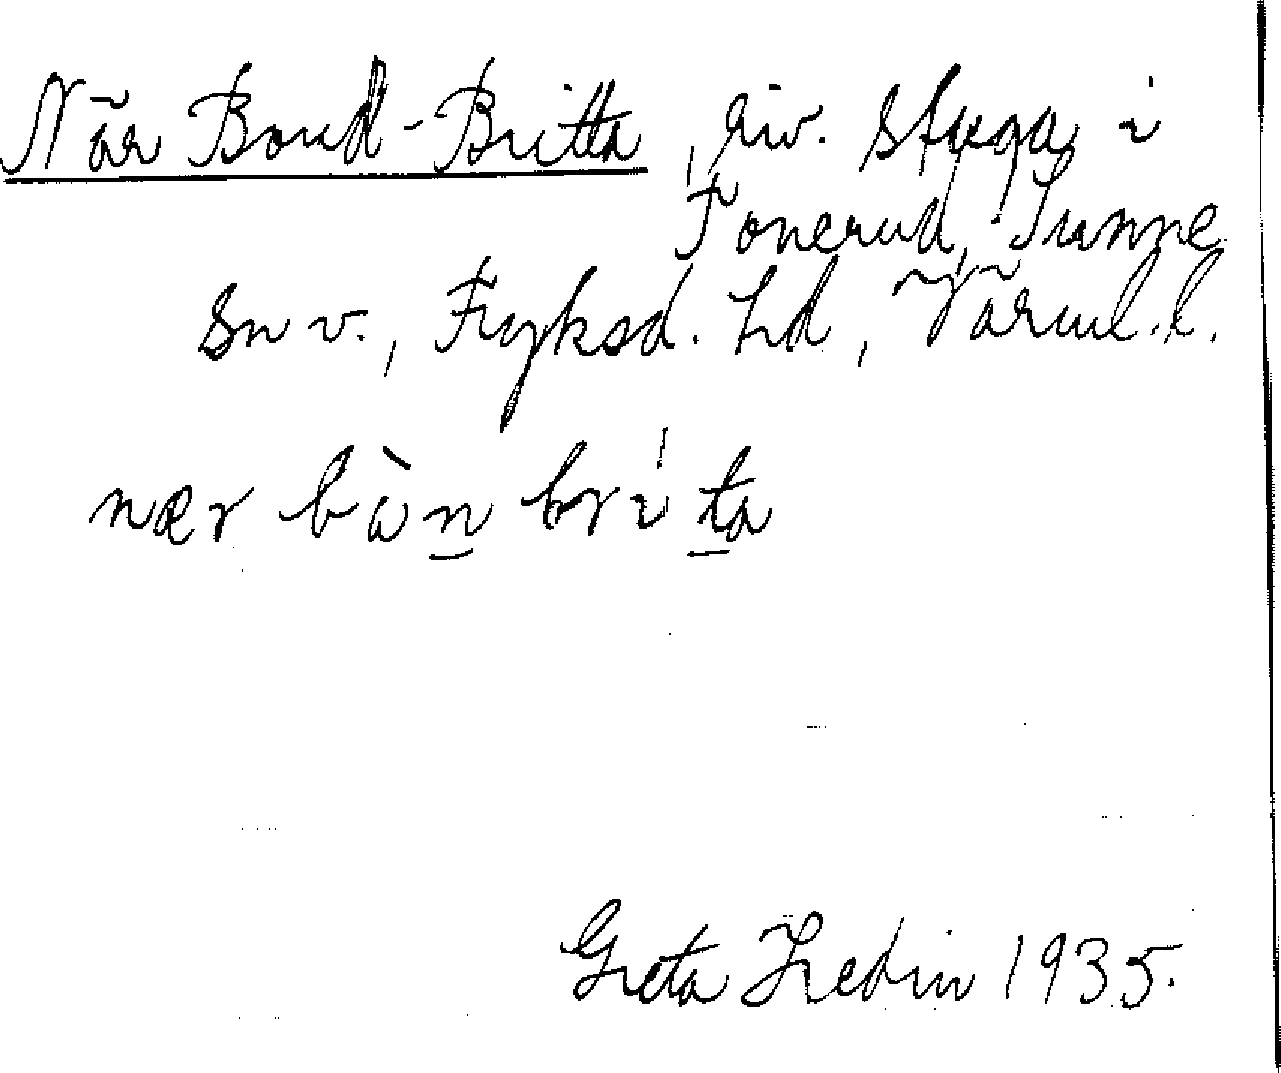 När Bond-Britta, riv. stuga i
Tonerud, Sunne
sn v., Fryksd. hd, Värml. l.
nær bàn bri'ta
Greta Hedin 1935.